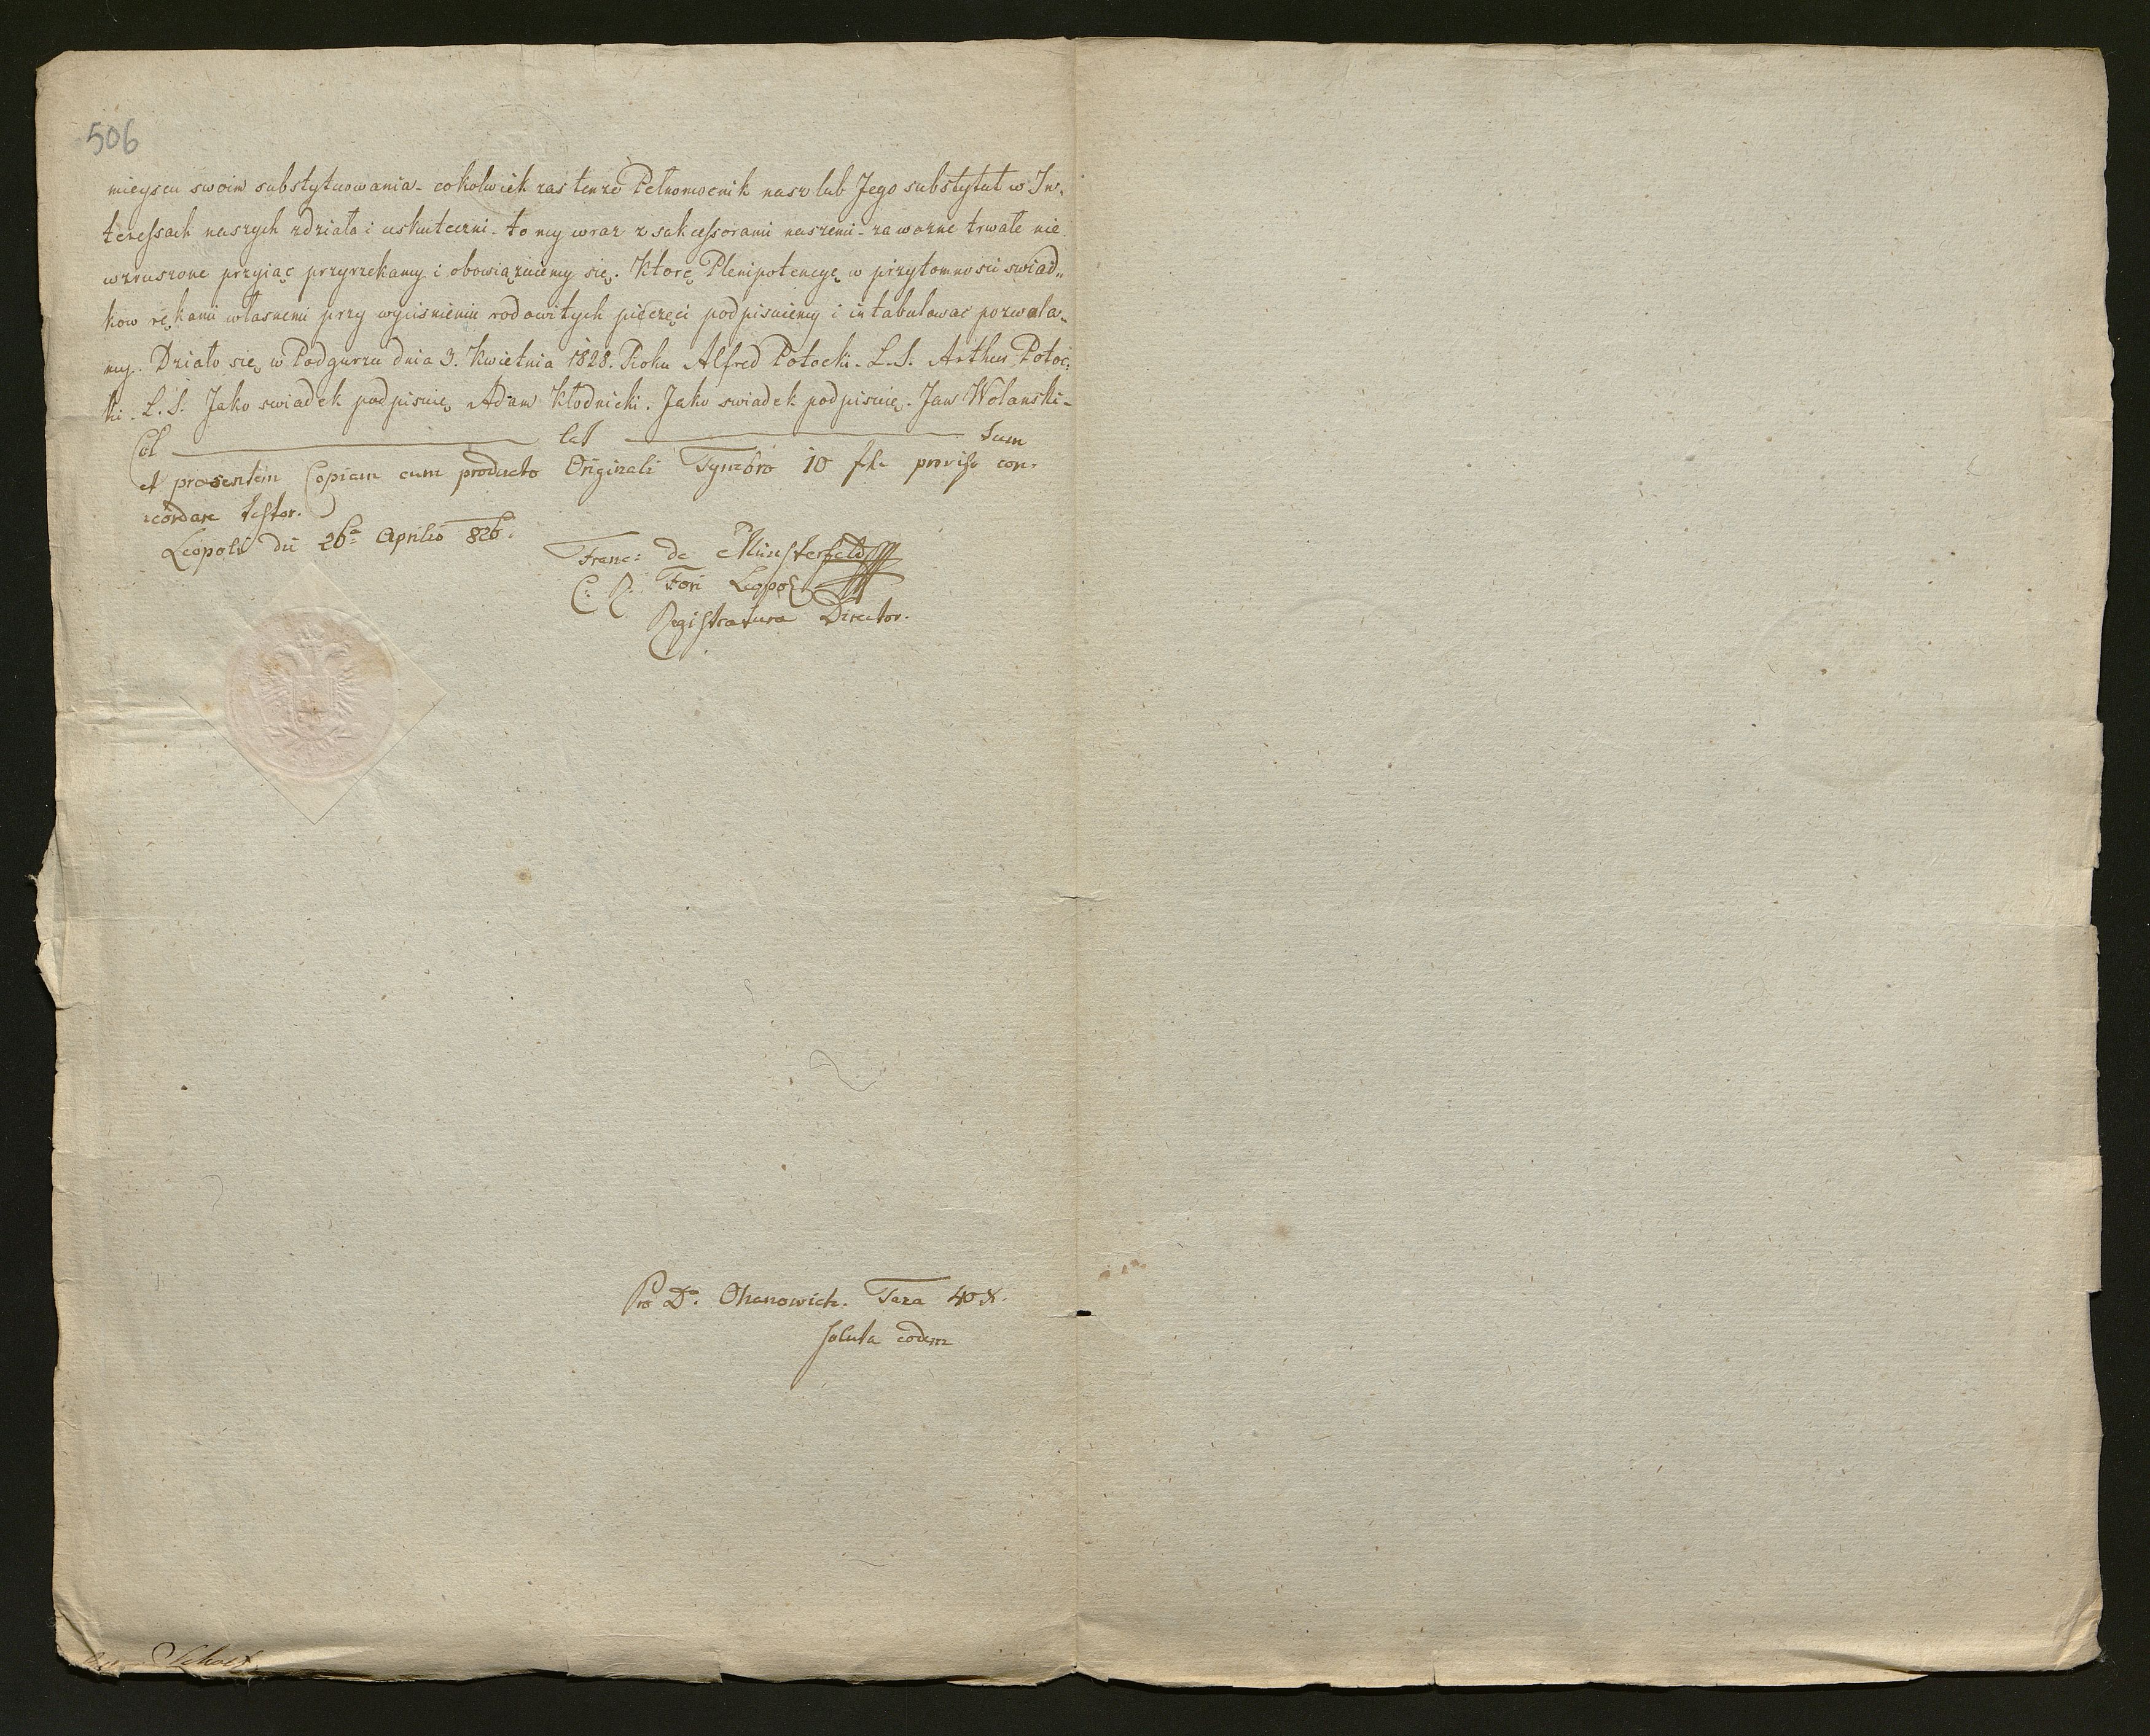 506
mieyscu swoim substytuowania - cokolwiek zas tenze Pełnomocnik nasz lub Jego substytut w In„
teressach naszych zdziała i uskuteczni - to my wraz z sukcessorami naszemi - za wazne trwałe nie
wzruszone przyiąc przyrzekamy i obowiązuiemy się. Ktorę Plenipotencyę w przytomnosci swiad„
kow rękami własnemi przy wyciśnieniu rodowitych pięczęci podpisuiemy i intabulowac pozwala„
my. Działo się w Podgurzu dnia 3. Kwietnia 1828. Roku Alfred Potocki. L.S. Arthur Potoc:
ki. L.S. Jako swiadek podpisuię Adam Kłodnicki. Jako swiadek podpisuię. Jan Wolanski -
Col lat tum
et praesentem Copiam cum producto Originali Tymbro 10 provis con:
cordare testor.
Leopoli die 26a Aprilis 826.
Franc: de Münsterfeld
C: R. Fori Leopol
Registratura Director.
Pro Do. Ohanowicz. Taxa 40 x.
soluta eodem